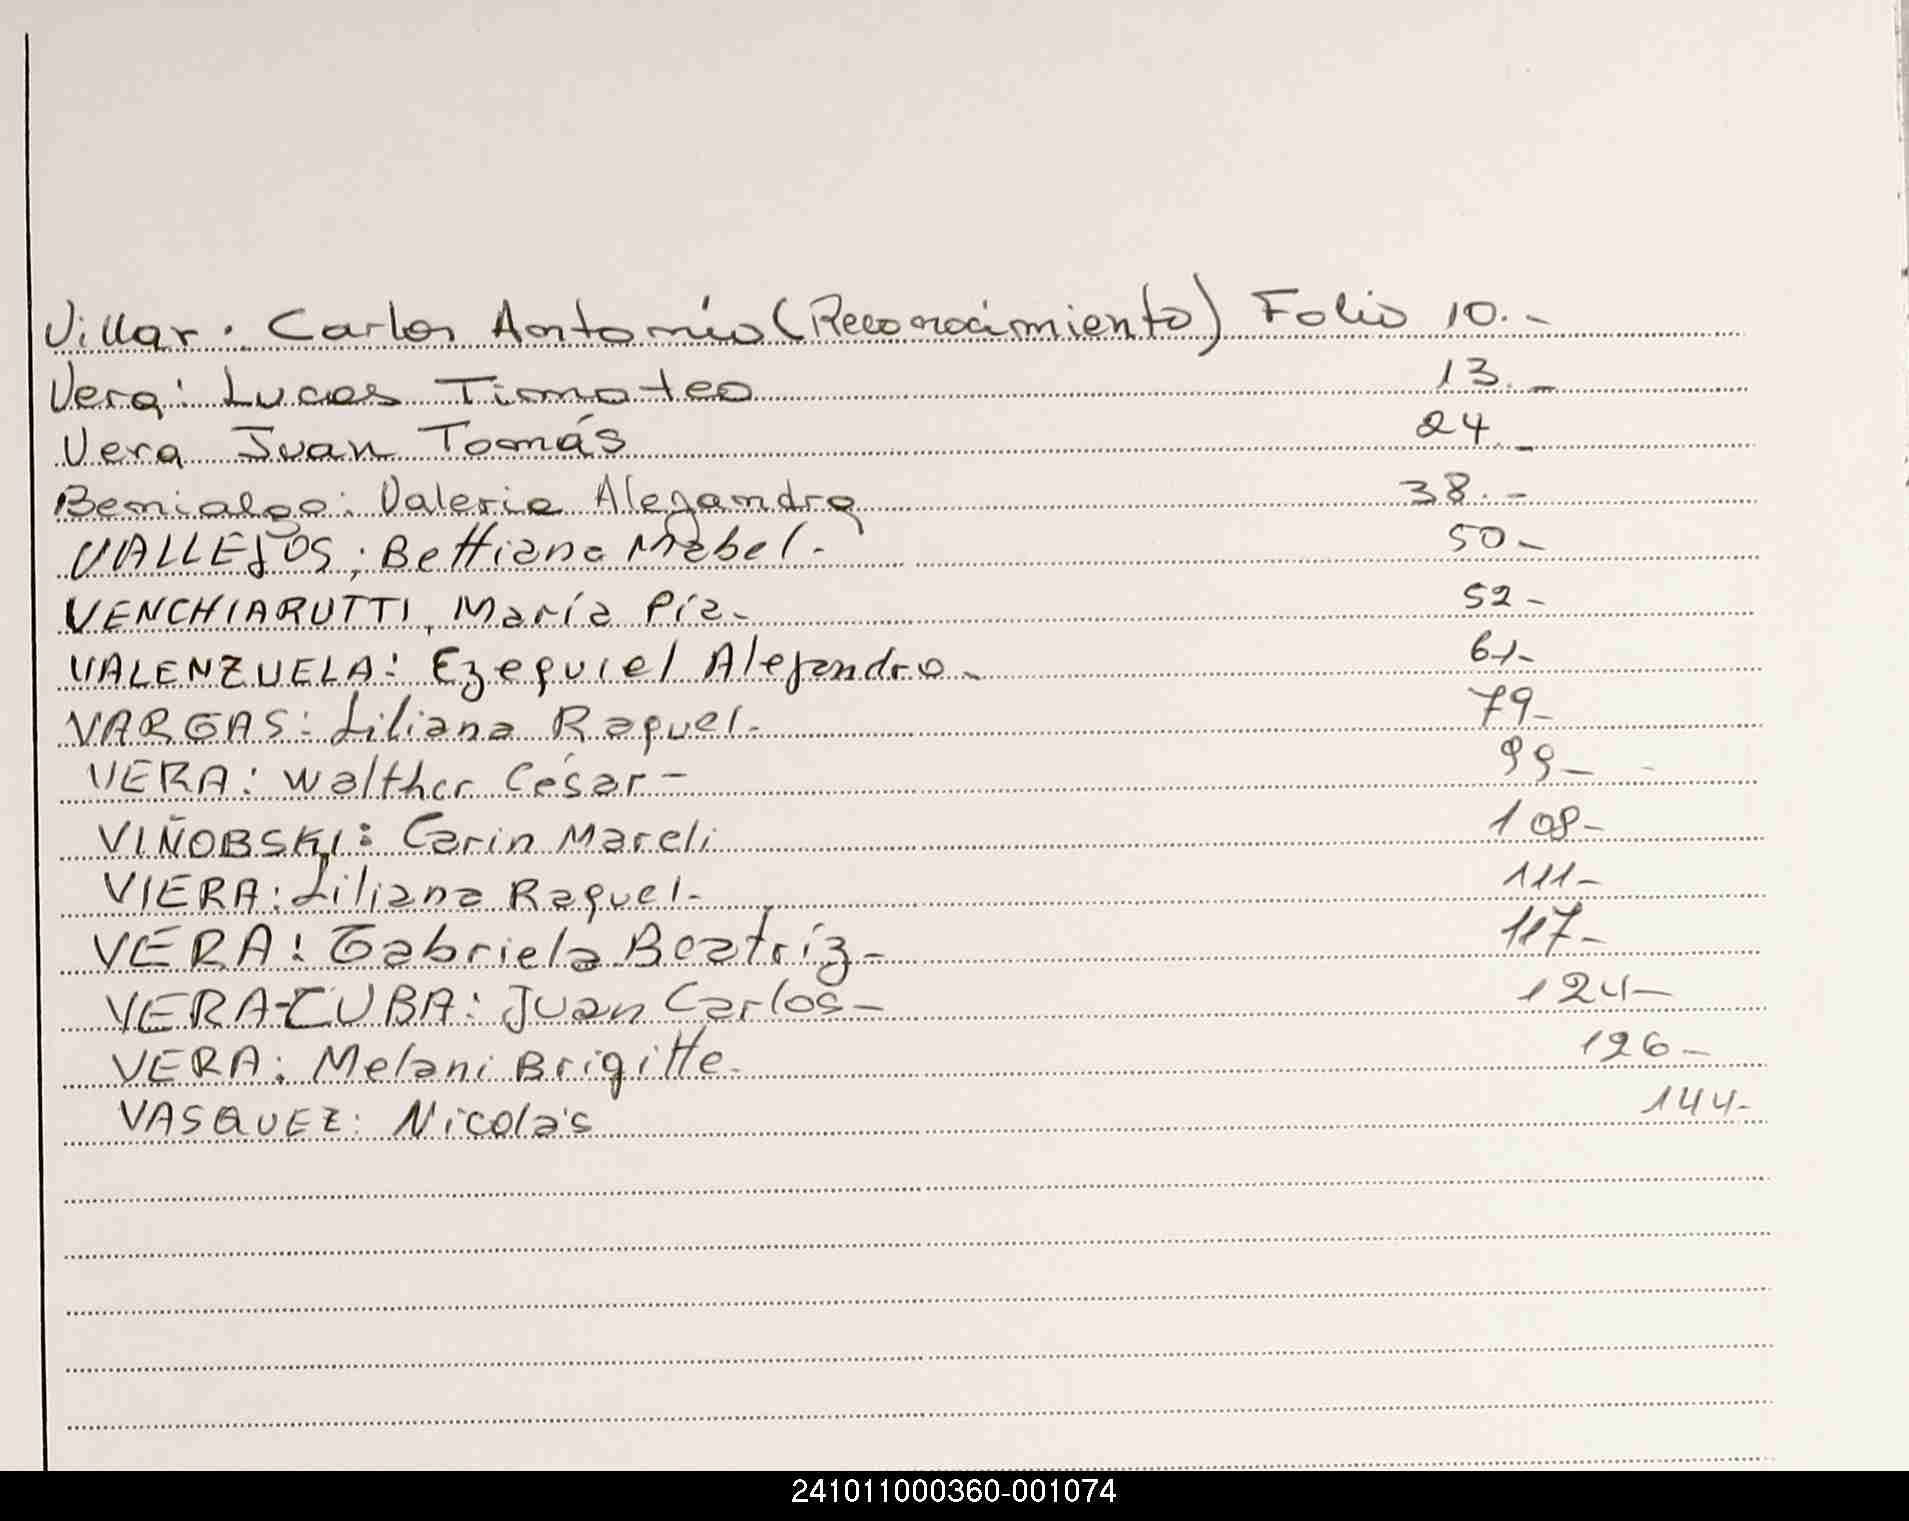 Villar. Carlos Antonio (Reconocimiento) Folio 10.-
Vera: Lucas Timoteo 13.-
Vera Juan Tomás 24.-
Benialgo: Valeria Alejandra 38.-
VALLEJOS; Bettiana Mabel.- 50-
VENCHIARUTTI, María Pía- 52-
VALENZUELA: Ezequiel Alejandro- 61-
VARGAS: Liliana Raquel- 79-
VERA: Walther César- 99-
VIÑOBSKI: Carin Mareli 108-
VIERA: Liliana Raquel- 111-
VERA: Gabriela Beatríz- 117-
VERA-CUBA: Juan Carlos- 124-
VERA: Melani Brigitte- 126-
VASQUEZ: Nicolás 144-
241011000360-001074